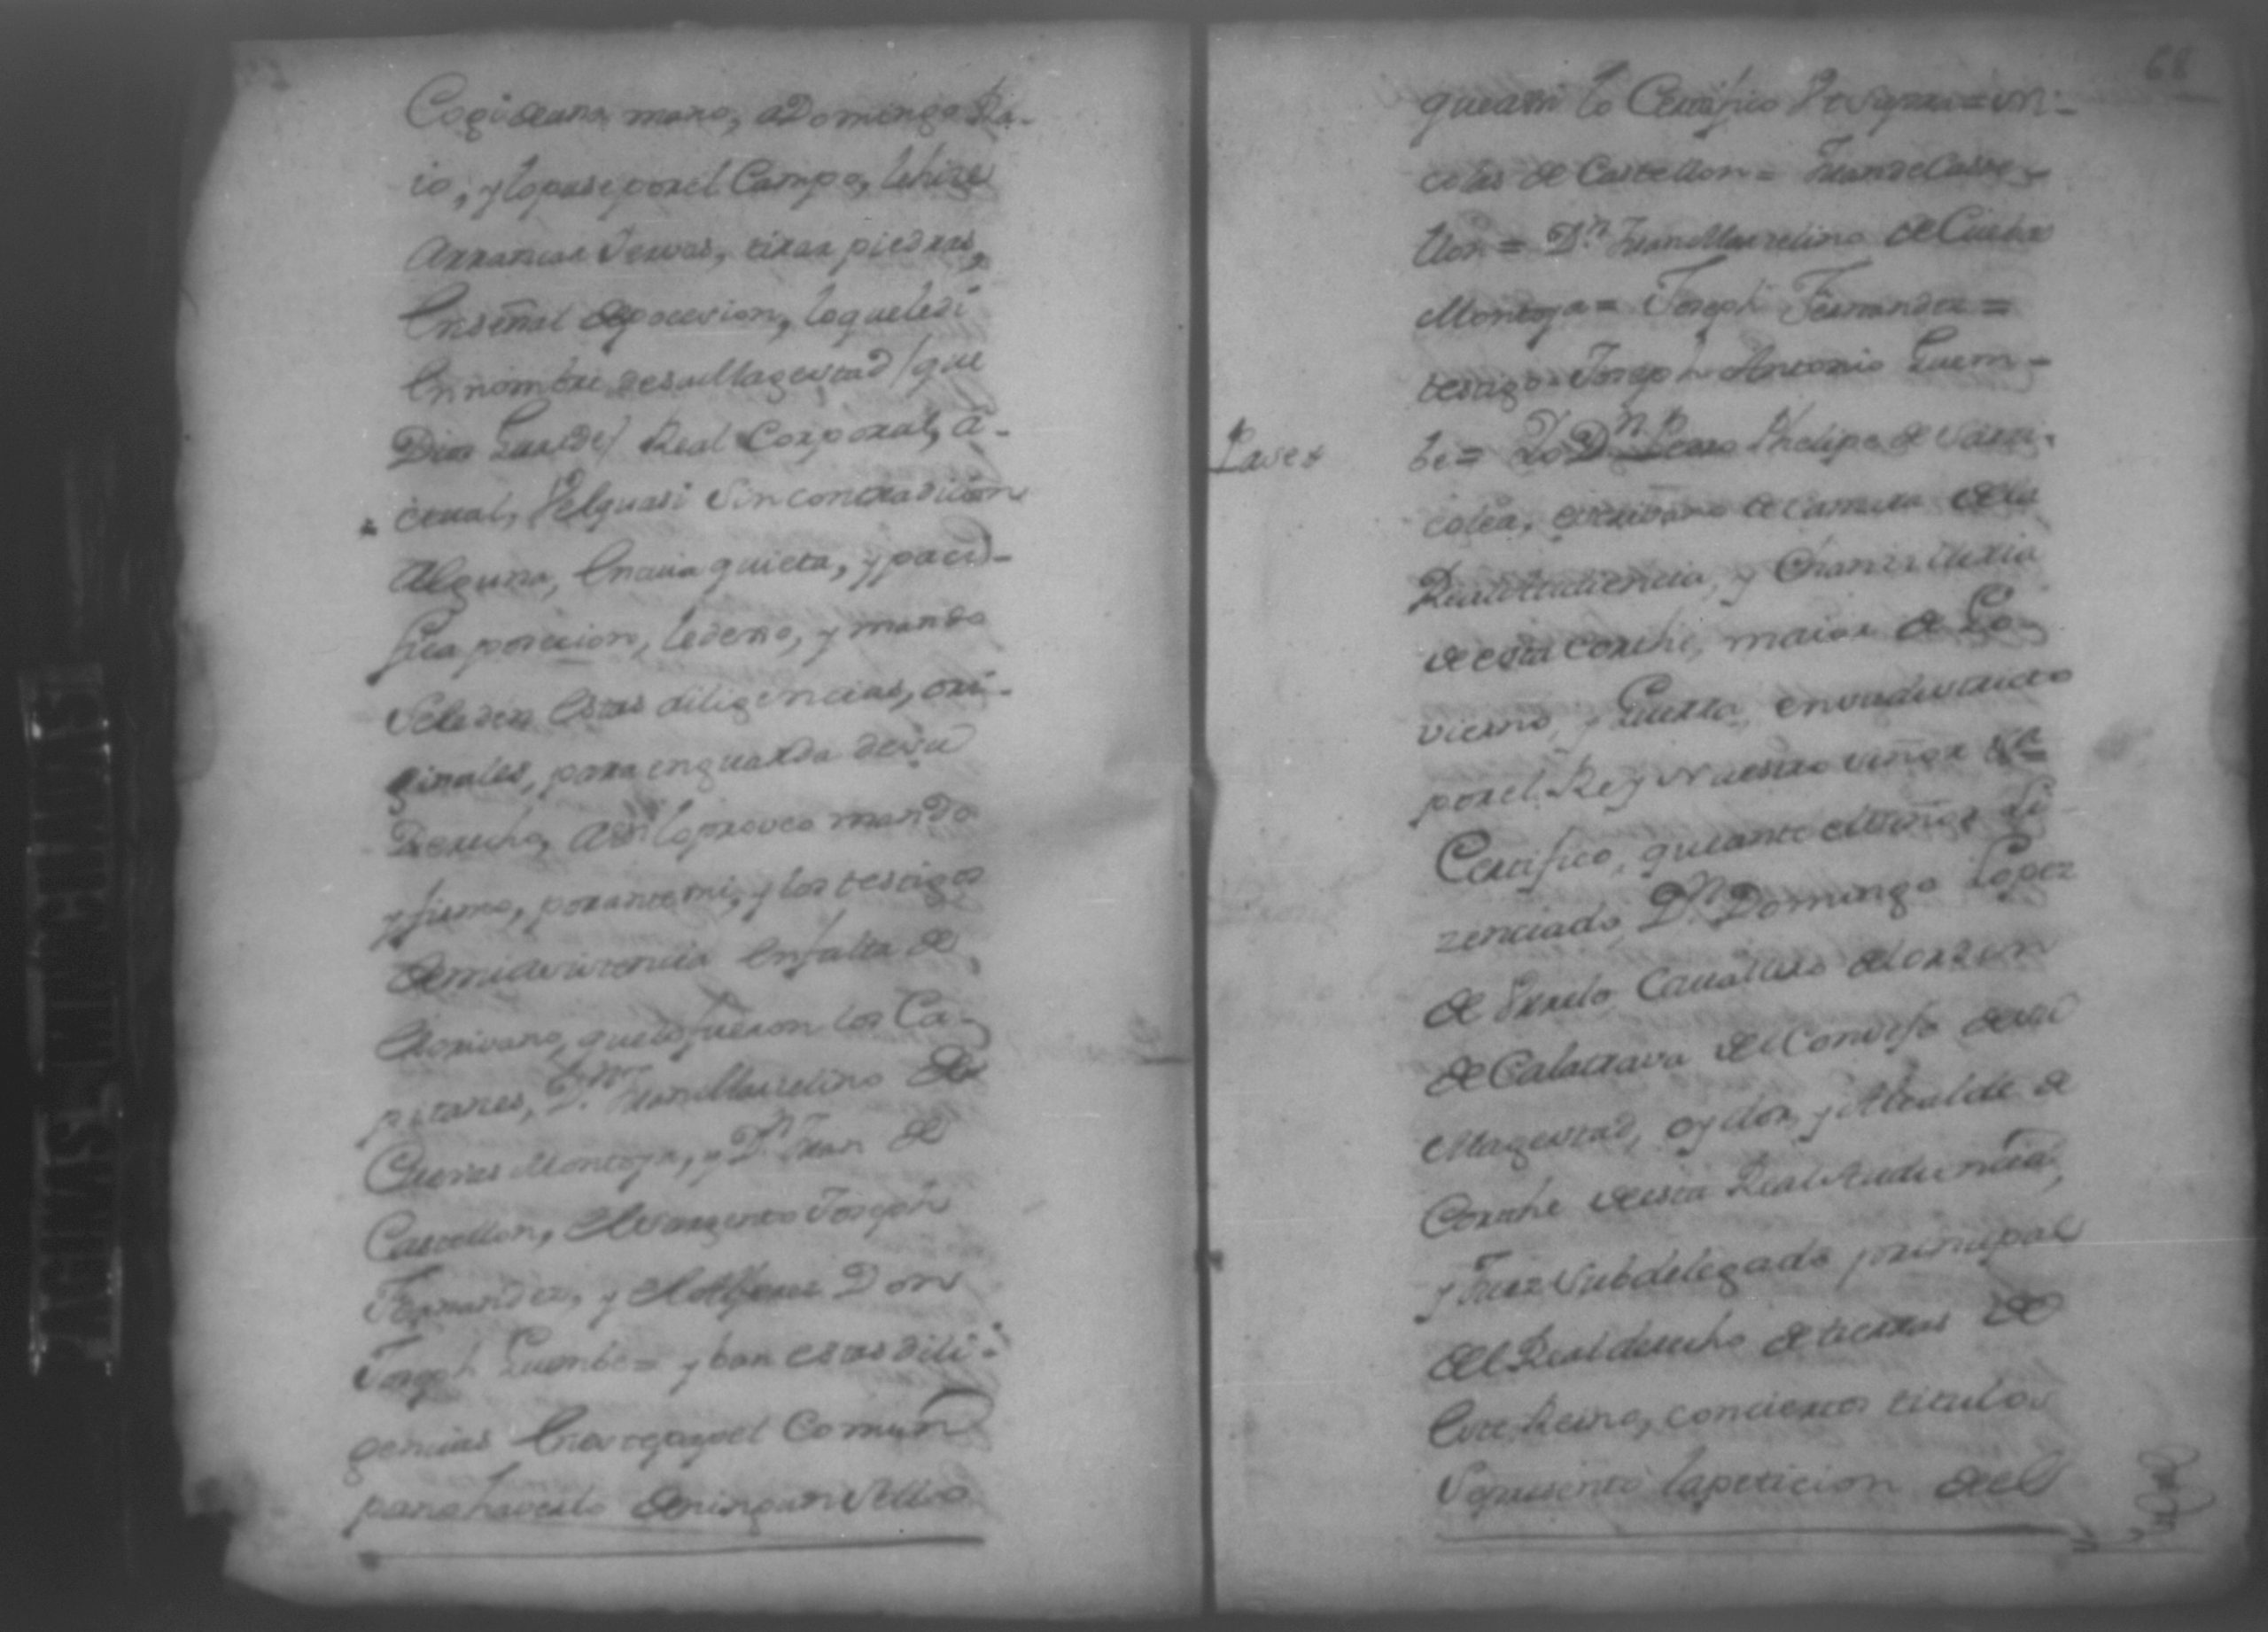 Cogi deuna mano, aDomingo Ra-
io, ylopase porel Campo, lehize
Arrancar Yervas, tirar piedras,
Enseñal deposesion, loqueledi
Ennombre desu Magestad /que
Dios Guarde/ Real Corporal, a-
ctual, Velquasi Sin contradicion
Alguna, Encuia quieta, ypaci-
fica posesion, ledexo, y mando
Seleden Estas diligencias, ori-
ginales, para enguarda desu
Derecho, Asi loproveo mando
yfirmo, porantemi, ylos testigos
demiasistencia Enfalta de
Escrivano, quelofueron los Ca-
pitanes, D.n Juan Marcelino de
Cuevas Montoya, y D.n Juan de
Castellon, Elsargento Joseph
Fernandez, y ElAlferez Don
Joseph Guembe= y ban estas dili-
gencias Enestepapel Comun
por no haverlo deningun Sello
68
queasi lo Certifico
colas de Castellon= Juan deCaste-
llon= D.n Juan Marcelino deCuebas
Montoya= Joseph Fernandez=
testigo= Joseph Antonio Guem-
be= Yo D.n Phelipe de
escrivano de Camara dela
Real Audiencia, y Chancilleria
deesta Corthe, maior de Go-
vierno, y Guerra, ensudistricto
porel Rey Nuestro señor &a
Certifico, queante elseñor Li-
zenciado D.n Domingo Lopez
de Cavallero delorden
de Calatrava del Consejo desu
Magestad, oydor, y Alcalde de
Corthe deesta Real Audiencia,
y Juez Subdelegado principal
del Real derecho de tierras de
Este Reino, conciertos titulos
Sepresento lapeticion del